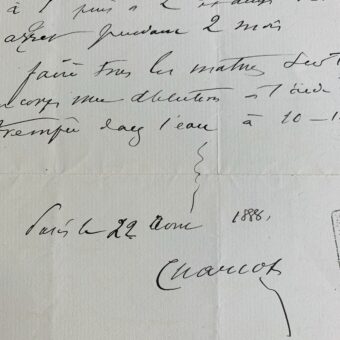 à 1 puis à 2
pendant 2 mois
faire tous les matins sur
corps une ablution
trempée dans l'eau à 10-1
Paris le 22 Août 1888.
Charcot